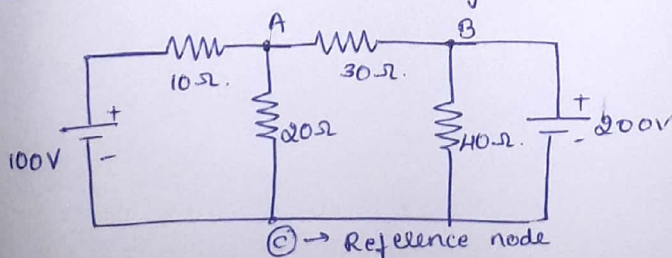 A
B
10Ω.
30Ω.
+
20Ω
40Ω.
+
200V
100V
-
-
C → Reference node